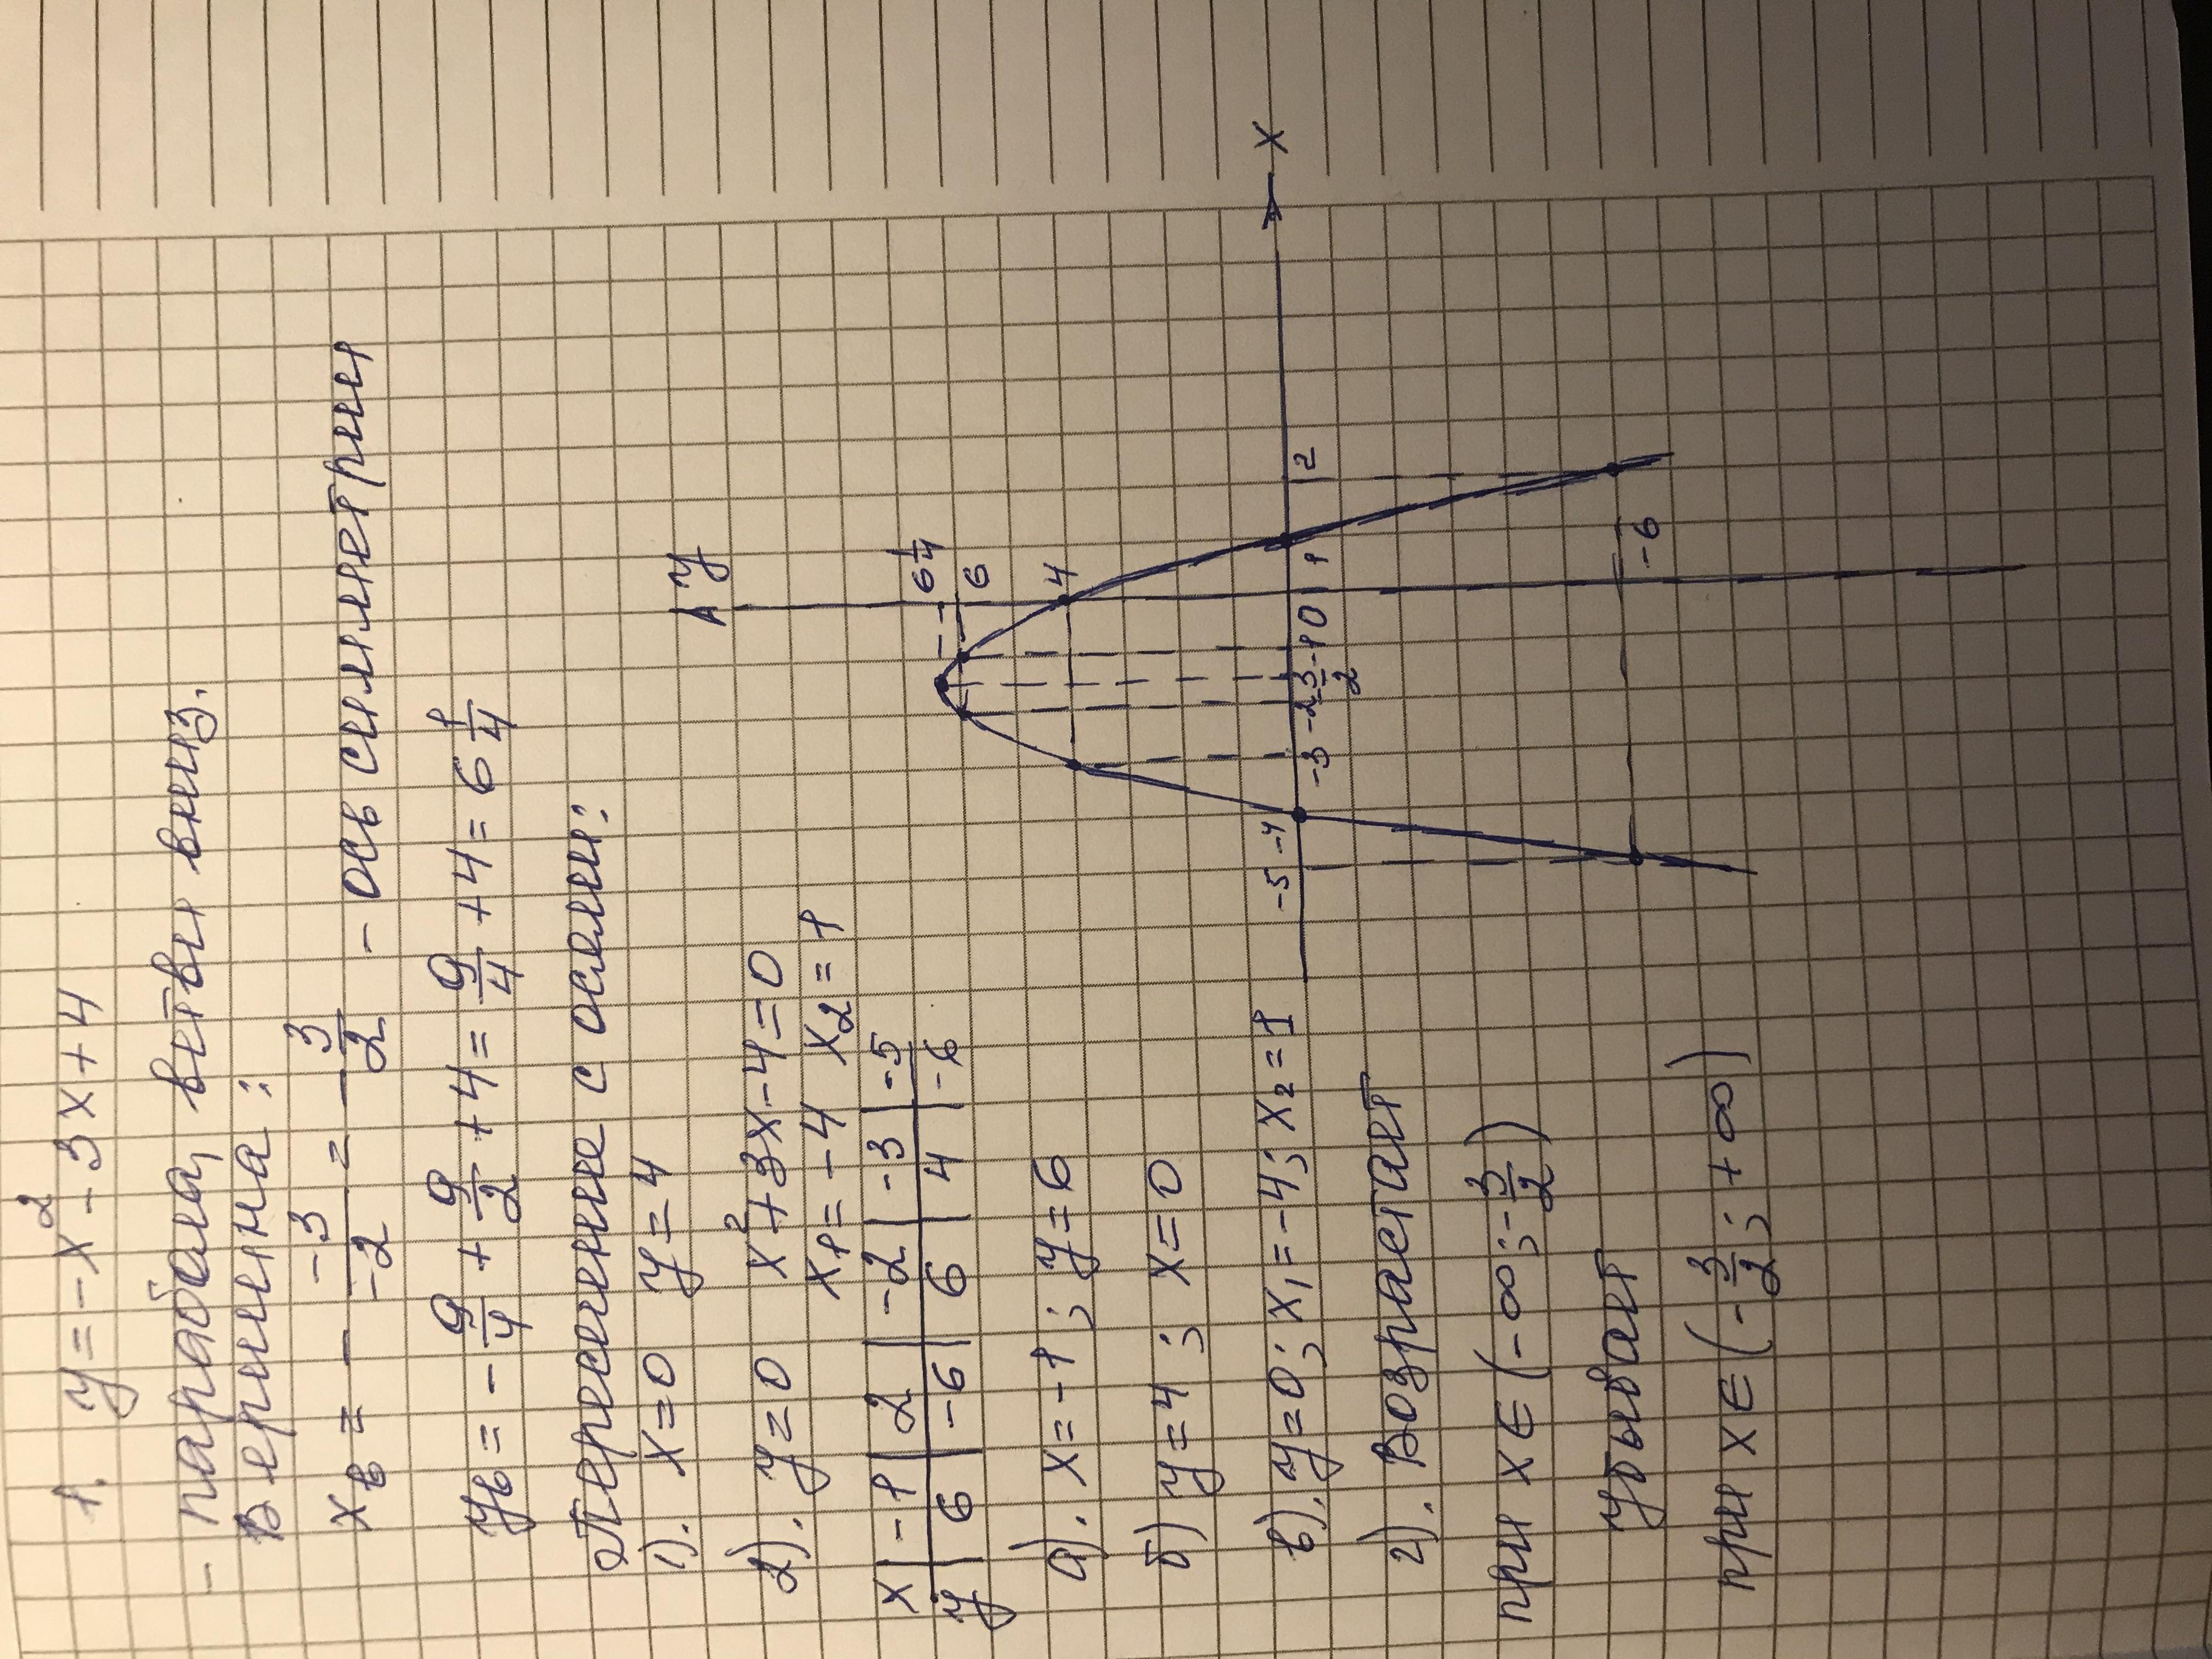 1. y = -x² - 3x + 4
- парабола, ветви вниз.
Вершина:
xв = - -3/-2 = -3/2 - ось симметрии
yв = -9/4 + 9/2 + 4 = 9/4 + 4 = 6 1/4
Пересечение с осями:
1). x=0 y=4
2). y=0 x²+3x-4=0
x1=-4 x2=1
x | -1 | 2 | -2 | -3 | -5
y | 6 | -6 | 6 | 4 | -6
а). x=-1; y=6
б) y=4; x=0
в). y=0; x1=-4; x2=1
г). Возрастает
при x∈(-∞; -3/2)
убывает
при x∈(-3/2; +∞)
y
6 1/4
6
4
-5 -4 -3 -2 -3/2 -1 0 1 2 x
-6